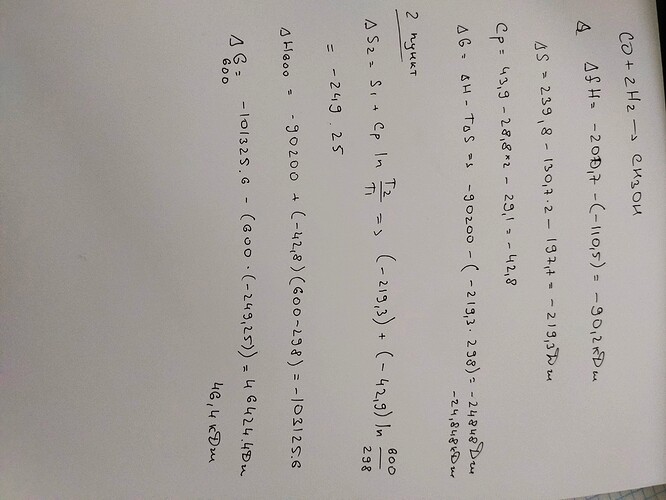 CO + 2H2 → CH3OH
ΔfH = -200,7 - (-110,5) = -90,2 кДж
ΔS = 239,8 - 130,7·2 - 197,7 = -219,3 Дж
Cp = 43,9 - 28,8×2 - 29,1 = -42,8
ΔG = ΔH - TΔS => -90200 - (-219,3·298) = -24848 Дж
-24,848 кДж
2 пункт
ΔS2 = S1 + Cp ln T2/T1 => (-219,3) + (-42,9) ln 600/298
= -249.25
ΔH600 = -90200 + (-42,8)(600-298) = -103125.6
ΔG600 = -101325.6 - (600·(-249,25)) = 46424.4 Дж
46,4 кДж